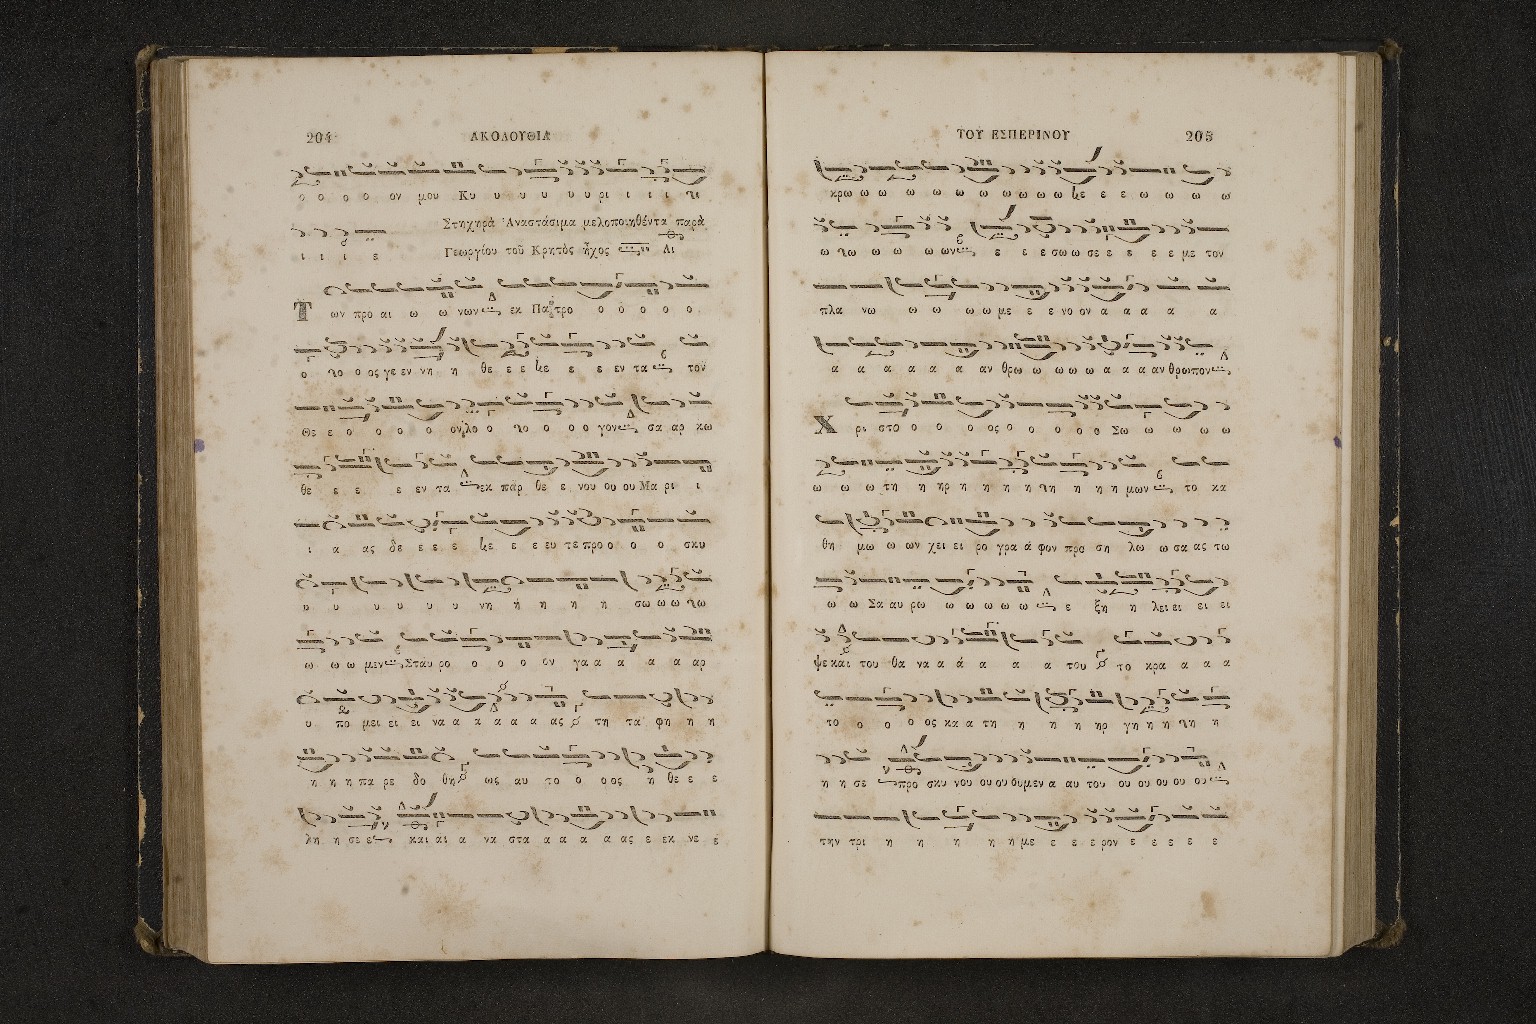 204 ΑΚΟΛΟΥΘΙΑ
ο ο ο ο ον μου Κυ υ υ υ υ υ ρι ι ι ι ι
Στηχηρὰ Ἀναστάσιμα μελοποιηθέντα παρὰ
ι ι ι ε Γεωργίου τοῦ Κρητὸς ἦχος
Τ ων προ αι ω ω νων εκ Πα τρο ο ο ο ο ο
ο ο ο ος γε εν νη η θε ε ε ε ε ε εν τα τον
Θε ε ο ο ο ο ον λο ο ο ο ο ο γον σα αρ κω
θε ε ε ε εν τα εκ παρ θε ε νου ου ου Μα ρι ι
ι α ας δε ε ε ε ε ε ε ευ τε προ ο ο ο σκυ
υ υ υ υ υ υ νη ή η η η σω ω ω ω
ω ω ω μεν Σταυ ρο ο ο ο ον γα α α α α αρ
υ πο μει ει ει να α α α α α ας τη τα φη η η
η η η πα ρε δο θη ως αυ το ο ο ος η θε ε ε
λη η σε ε και αι α να στα α α α α ας ε εκ νε ε
ΤΟΥ ΕΣΠΕΡΙΝΟΥ 205
κρω ω ω ω ω ω ω ω ω ω ω ε ε ε ω ω ω ω
ω ω ω ω ω ων ε ε ε σω ω σε ε ε ε ε με τον
πλα νω ω ω ω ω με ε ε νο ον α α α α α
α α α α α α αν θρω ω ω ω ω α α α αν θρωπον
Χ ρι στο ο ο ο ος ο ο ο ο ο Σω ω ω ω ω
ω ω ω τη η ηρ η η η η η η η η μων το κα
θη μω ω ων χει ει ρο γρα ά φον προ ση λω ω σα ας τω
ω ω Σα αυ ρω ω ω ω ω ω ε ξη η λει ει ει ει
ψε και του θα να α ά α α α του το κρα α α α
το ο ο ο ος κα α τη η η η ηρ γη η η η η
η η σε προ σκυ νου ου ου ουμεν α αυ του ου ου ου ου ου
την τρι η η η η η με ε ε ε ρον ε ε ε ε ε